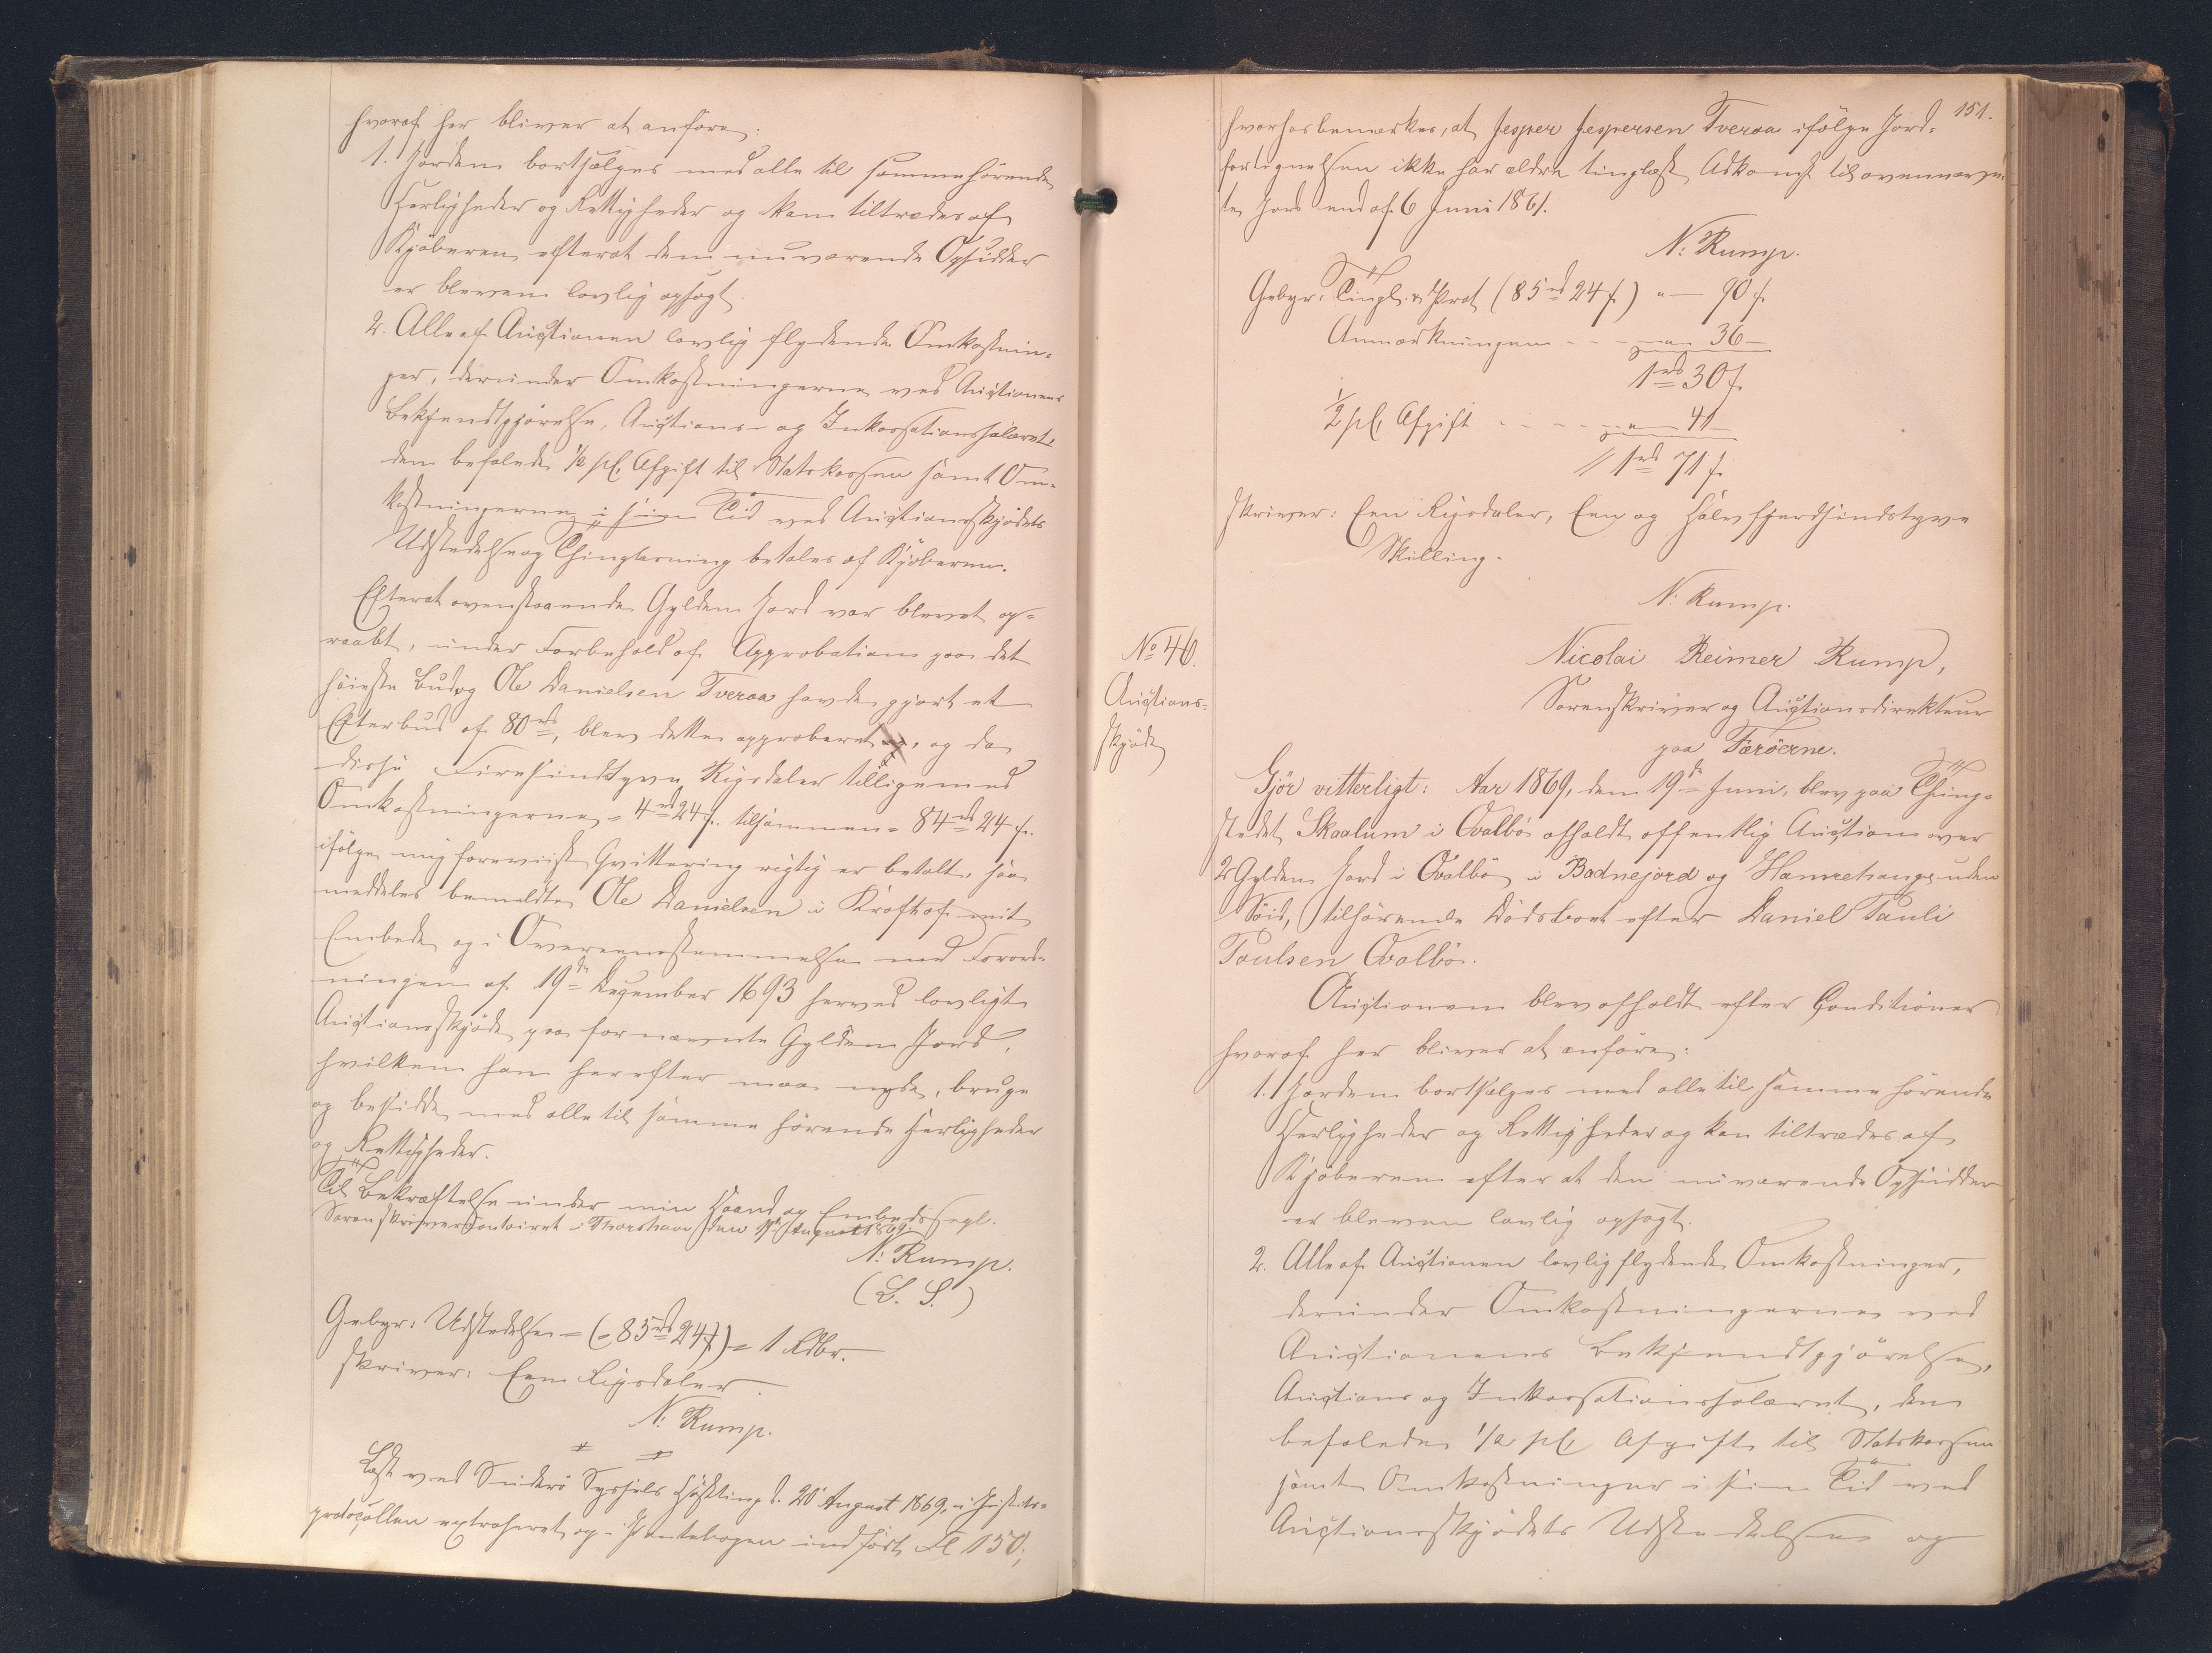 hvoraf her bliver at anføre:
1. Jorden bortsælges med alle til sammehörende
Herligheder og Rettigheder og kan tiltrædes af
Kjöberen efterat den nuværende Opsidder
er bleven lovlig opsagt.
2. Alle af Auctionen lovlig flydende Omkostnin-
ger, derunder Omkostningerne ved Auctionens
Bekjendtgjörelse, Auctions- og Inkassationssalairet,
den befalede 1/2 pCt. Afgift til Statskassen samt Om-
kostningerne i sin Tid ved Auctionsskjödets
Udstedelse og Thinglæsning betales af Kjöberen.
Efterat ovenstaaende Gylden Jord var blevet op-
raabt, under Forbehold af Approbation paa det
höieste Bud, og Ole Danielsen Tveraa havde gjort et
Efterbud af 80 rd, blev dette approberet, og da
disse Firesindstyve Rigsdaler tilligemed
Omkostningerne = 4 rd 24 s. tilsammen = 84 rd 24 s.
ifölge mig foreviist Qvittering rigtig er betalt, saa
meddeles bemeldte Ole Danielsen i Kraft af mit
Embede og i Overeensstemmelse med Forord-
ningen af 19de December 1693 herved lovligt
Auctionsskjöde paa fornævnte Gylden Jord,
hvilken han herefter maa nyde, bruge
og besidde med alle til samme hörende Herligheder
og Rettigheder.
Til Bekræftelse under min Haand og Embedssegl.
Sorenskrivercontoiret i Thorshavn den August 1869.
N: Rump.
(L. S.)
Gebyr: Udstedelse = (= 85 rd 24 s) = 1 Rdlr.
skriver: Een Rigsdaler.
N: Rump.
Læst ved Suderö Syssels Höstting d. 20 August 1869, i Justits-
protocollen extraheret og i Pantebogen indfört Fol 150;
151.
hvorhos bemærkes, at Jesper Jespersen Tveraa ifölge Jord-
fortegnelsen ikke har ældre tinglæst Adkomst til ovennævn-
te Jord end af 6 Juni 1861.
N: Rump.
Gebyr: Tingl. & Prot (85 rd 24 s) " — 90 s.
Anmærkningen - - - " 36 —
1 rd 30 s.
1/2 pCt. Afgift - - - - " 41 —
1 rd 71 s.
skriver: Een Rigsdaler, Een og halvfjerdsindstyve
Skilling.
N: Rump.
No 40.
Auctions-
skjöde
Nicolai Reimer Rump,
Sorenskriver og Auctionsdirekteur
paa Færöerne.
Gjör vitterligt: Aar 1869, den 19de Juni, blev paa Thing-
stedet Skaalum i Qvalbö afholdt offentlig Auction over
2 Gylden Jord i Qvalbö i Badnejord og Hamrehauge uden
Söid, tilhörende Dödsboet efter Daniel Pauli
Poulsen Qvalbö.
Auctionen blev afholdt efter Conditioner
hvoraf her bliver at anföre:
1. Jorden bortsælges med alle til samme hörende
Herligheder og Rettigheder og kan tiltrædes af
Kjöberen efter at den nuværende Opsidder
er bleven lovlig opsagt.
2. Alle af Auctionen lovlig flydende Omkostninger,
derunder Omkostningerne ved
Auctionens Bekjendtgjörelse,
Auctions og Inkassationssalairet, den
befalede 1/2 pCt. Afgift til Statskassen
samt Omkostninger i sin Tid ved
Auctionsskjödets Udstedelse og